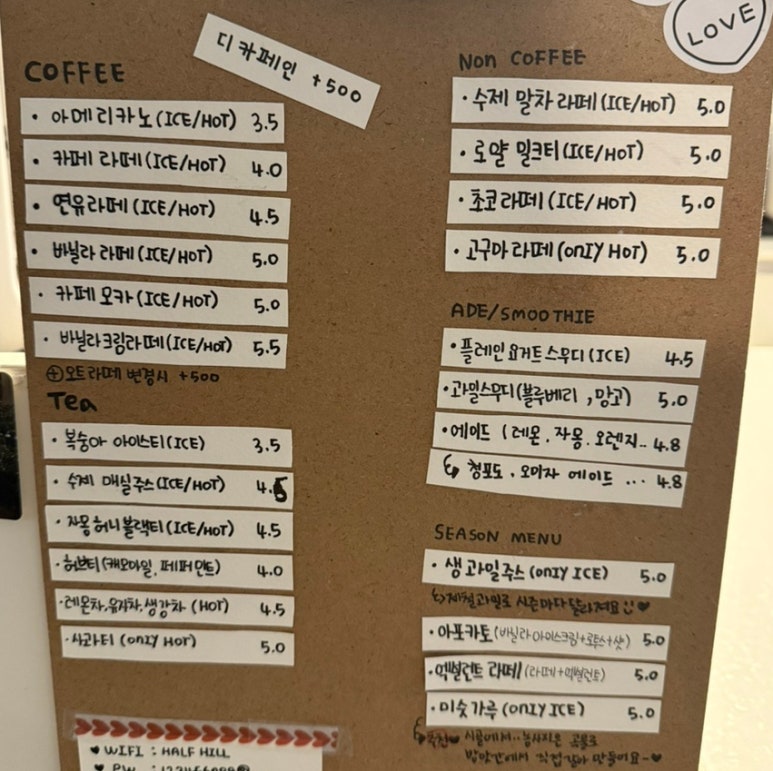 LOVE
디카페인 +500
COFFEE
· 아메리카노(ICE/HOT) 3.5
· 카페 라떼(ICE/HOT) 4.0
· 연유라떼(ICE/HOT) 4.5
· 바닐라 라떼(ICE/HOT) 5.0
· 카페 모카(ICE/HOT) 5.0
· 바닐라크림라떼(ICE/HOT) 5.5
⊕오트라떼 변경시 +500
Tea
· 복숭아 아이스티(ICE) 3.5
· 수제 매실주스(ICE/HOT) 4.5
· 자몽허니블랙티(ICE/HOT) 4.5
· 허브티(캐모마일, 페퍼민트) 4.0
· 레몬차,유자차,생강차 (HOT) 4.5
· 사과티 (ONLY HOT) 5.0
♥ WIFI : HALF HILL
♥ PW :
Non COFFEE
· 수제 말차라떼(ICE/HOT) 5.0
· 로얄 밀크티(ICE/HOT) 5.0
· 초코라떼(ICE/HOT) 5.0
· 고구마라떼(ONLY HOT) 5.0
ADE/SMOOTHIE
· 플레인요거트스무디(ICE) 4.5
· 과일스무디(블루베리 ,망고) 5.0
· 에이드 (레몬. 자몽. 오렌지.. 4.8
청포도. 오미자 에이드 ... 4.8
SEASON MENU
· 생과일주스(ONLY ICE) 5.0
제철과일로 시즌마다달라져요 ♥
· 아포카토(바닐라아이스크림+로투스+샷) 5.0
· 엑설런트 라떼(라떼+엑설런트) 5.0
· 미숫가루(ONLY ICE) 5.0
추천♥ 시골에서.. 농사지은 곡물로
방앗간에서 직접갈아 만들어요~♥